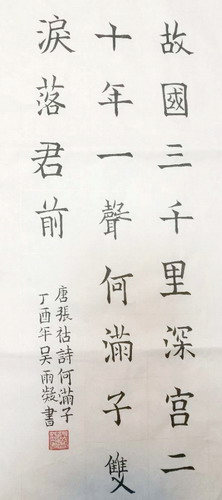 故國三千里深宮二
十年一聲何滿子雙
淚落君前
唐張祜詩何滿子
丁酉年吳雨凝書